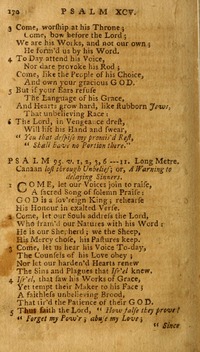 170 PSALM XCV.
3 Come, worship at his Throne;
Come, bow before the Lord;
We are his Works, and not our own;
He form'd us by his Word.
4 To Day attend his Voice,
Nor dare provoke his Rod;
Come, like the People of his Choice,
And own your gracious GOD.
5 But if your Ears refuse
The Language of his Grace,
And Hearts grow hard, like stubborn Jews,
That unbelieving Race:
6 The Lord, in Vengeance drest,
Will lift his Hand and swear,
"You that despise my promis'd Rest,
"Shall have no Portion there."
PSALM 95. v. 1, 2, 3, 6—11. Long Metre.
Canaan lost through Unbelief; or, A Warning to
delaying Sinners.
1 COME, let our Voices join to raise,
A sacred Song of solemn Praise:
GOD is a sov'reign King; rehearse
His Honour in exalted Verse.
2 Come, let our Souls address the Lord,
Who fram'd our Natures with his Word:
He is our Shepherd; we the Sheep,
His Mercy chose, his Pastures keep.
3 Come, let us hear his Voice To-day,
The Counsels of his Love obey;
Nor let our harden'd Hearts renew
The Sins and Plagues that Isr'el knew.
4 Isr'el, that saw his Works of Grace,
Yet tempt their Maker to his Face;
A faithless unbelieving Brood,
That tir'd the Patience of their GOD.
5 Thus saith the Lord, "How false they prove!
"Forget my Pow'r; abuse my Love;
"Since